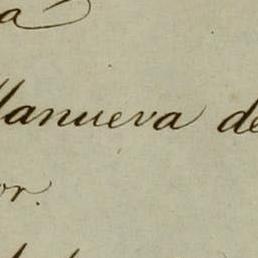 a
llanueva de
or.